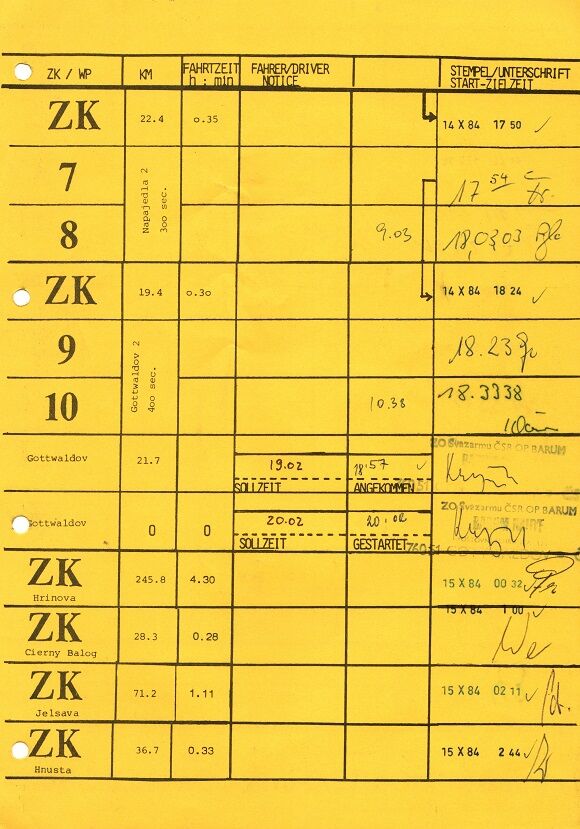 ZK / WP KM FAHRTZEIT h : min FAHRER/DRIVER NOTICE STEMPEL/UNTERSCHRIFT START-ZIELZEIT
ZK 22.4 0.35 14 X 84 17 50 ✓
7 Napajedla 2 300 sec. 17 54
8 9.03 18,03 03
ZK 19.4 0.30 14 X 84 18 24 ✓
9 Gottwaldov 2 400 sec. 18.23
10 10.38 18.3338
Gottwaldov 21.7 19.02 18.57 ✓ ZO Svazarmu ČSR OP BARUM
SOLLZEIT ANGEKOMMEN
Gottwaldov 0 0 20.02 20.02 ZO Svazarmu ČSR OP BARUM
SOLLZEIT GESTARTET 76051
ZK 245.8 4.30 15 X 84 00 32
Hrinova
ZK 28.3 0.28 15 X 84 1 00 ✓
Cierny Balog
ZK 71.2 1.11 15 X 84 02 11 ✓
Jelsava
ZK 36.7 0.33 15 X 84 2 44 ✓
Hnusta